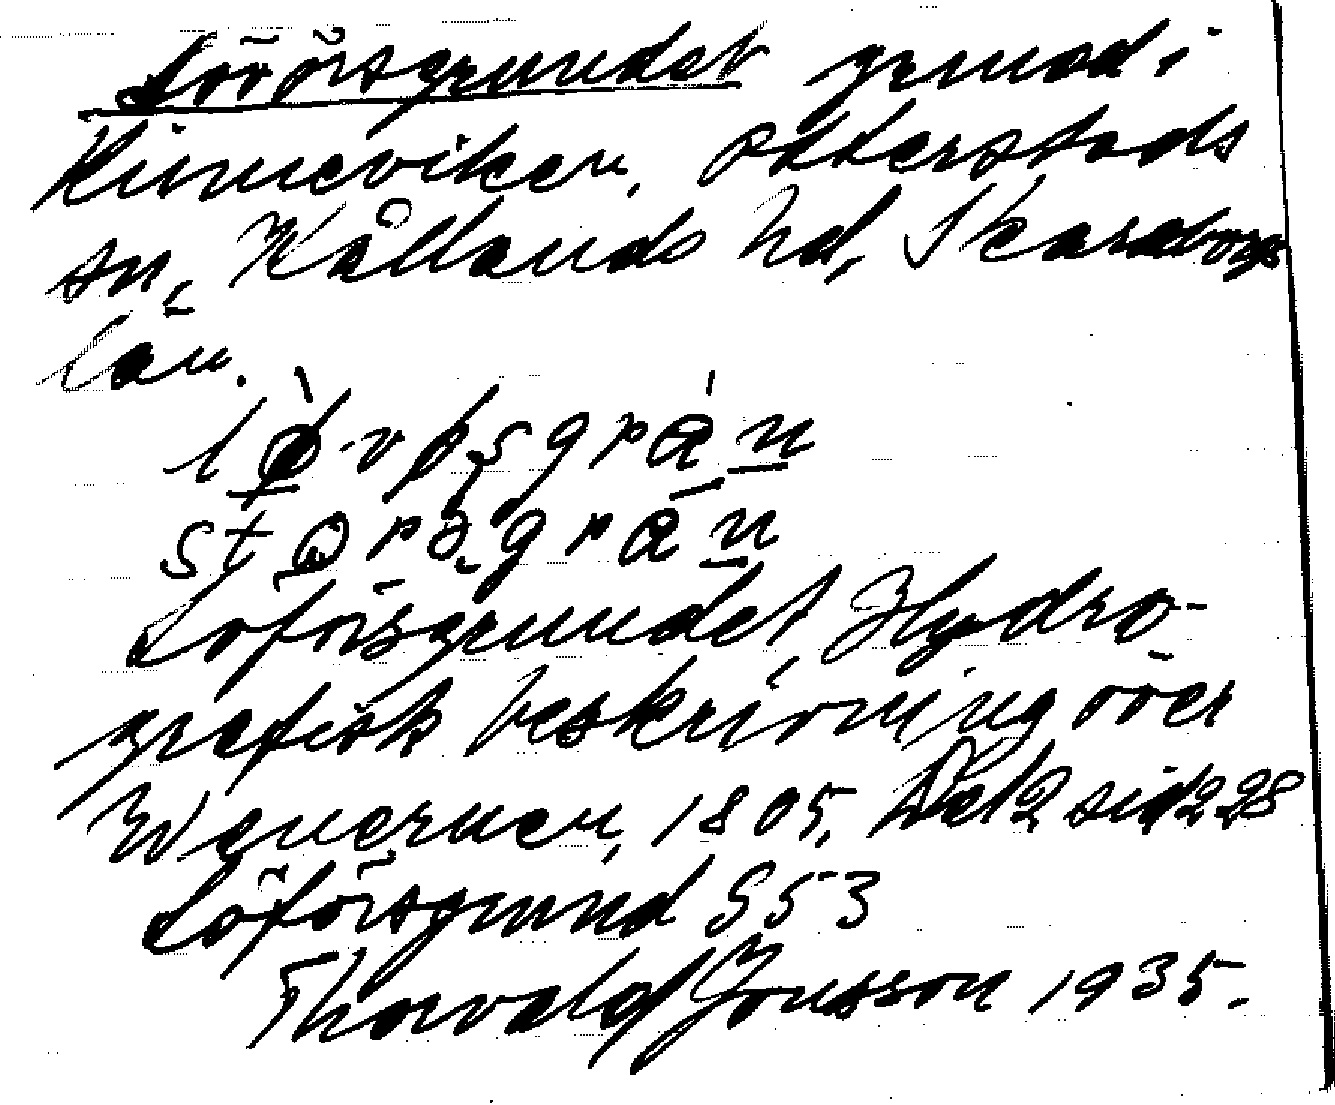 Lövörsgrundet grund i
Kinneviken, Otterstads
sn, Kållands hd, Skaraborgs
län.
Loförsgrundet, Hydro-
grafisk beskrivning över
Wenern, 1805, Del 2 sid 228
Löförsgrund S53
Thorvald Jonsson 1935.